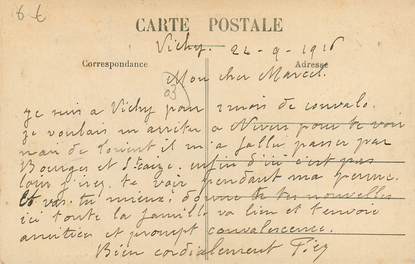 6 €
CARTE POSTALE
Vichy. 24-9-1916
Correspondance Adresse
Mon cher Marcel.
03
je suis a Vichy pour 2 mois de convalo.
je voulais m'arreter a Nevers pour te voir
mais de il m'a fallu passer par
Bourges et enfin d'ici c'est pas
loin j'irai te voir pendant ma perme.
Et vas-tu mieux, donne de tes nouvelles
ici toute la famille va bien et t'envoie
amitiés et prompt convalescence.
Bien cordialement